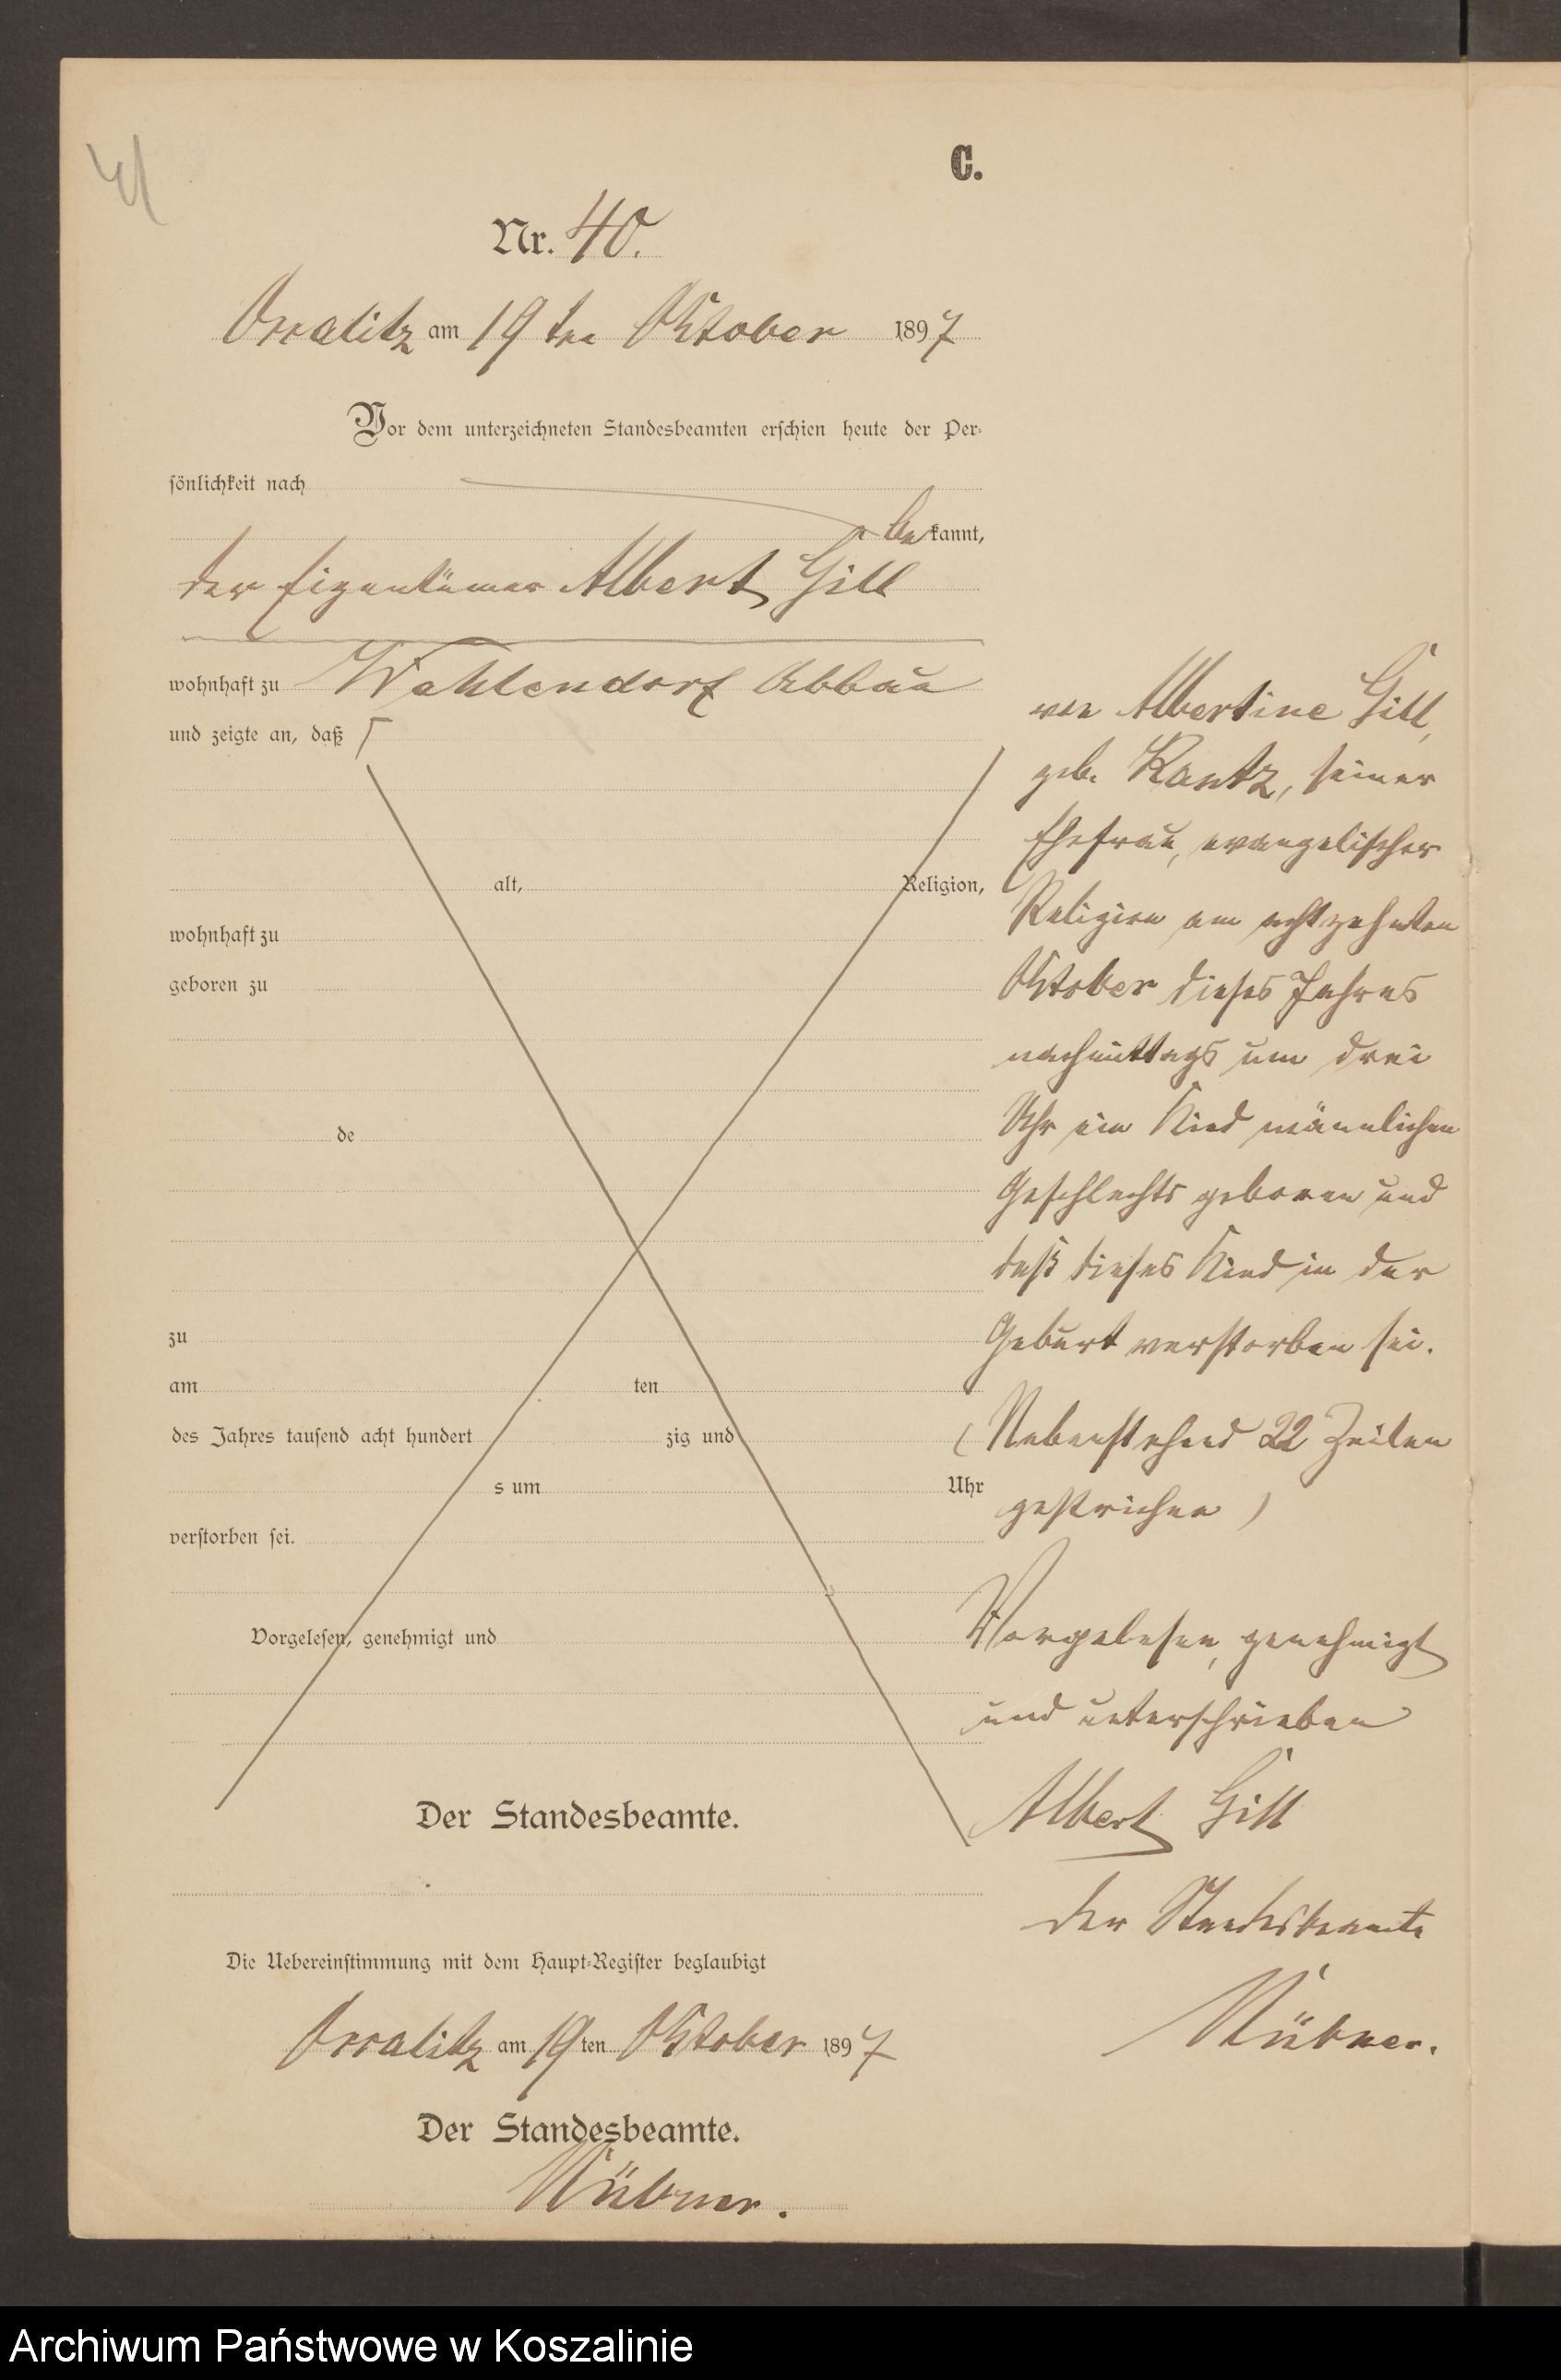 41
C.
Nr. 40.
am 19 ten Oktober 1897
Vor dem unterzeichneten Standesbeamten erschien heute der Per-
sönlichkeit nach
bekannt,
der Eigentümer Albert Gill
wohnhaft zu Wahlendorf Abbau
und zeigte an, daß
alt, Religion,
wohnhaft zu
geboren zu
de
zu
am ten
des Jahres tausend acht hundert zig und
s um Uhr
verstorben sei.
Vorgelesen, genehmigt und
Der Standesbeamte.
von Albertine Gill,
geb. Kantz, seiner
Ehefrau, evangelischer
Religion am achtzehnten
Oktober dieses Jahres
nachmittags um drei
Uhr ein Kind männlichen
Geschlechts geboren und
daß dieses Kind in der
Geburt verstorben sei.
(Nebenstehend 22 Zeilen
gestrichen)
Vorgelesen, genehmigt
und unterschrieben
Albert Gill
Der Standesbeamte
Die Uebereinstimmung mit dem Haupt-Register beglaubigt
am 19ten Oktober 1897
Der Standesbeamte.
Archiwum Państwowe w Koszalinie